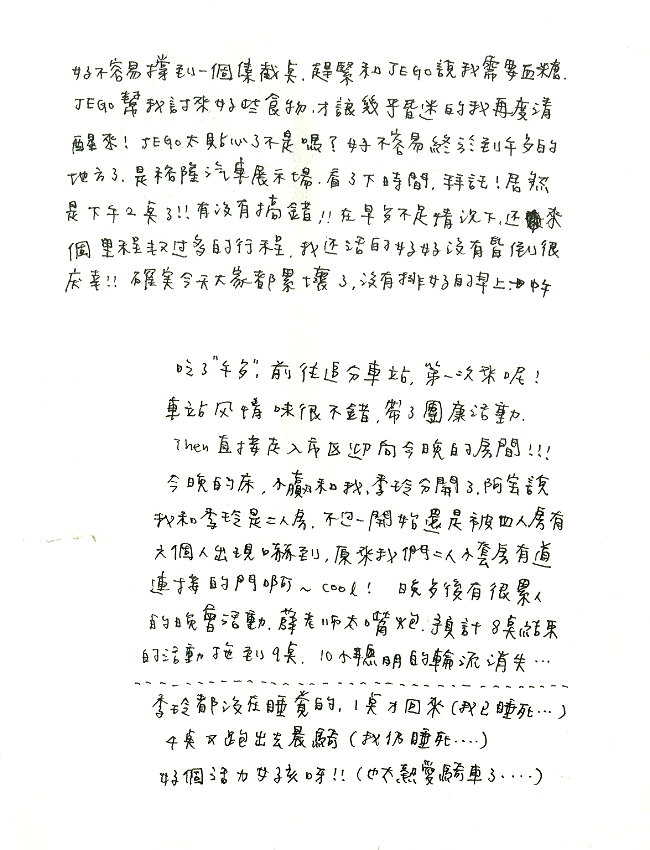 好不容易撐到一個集截桌，趕緊和JEGO說我需要血糖．
JEGO幫我討來好些食物，才讓幾乎昏迷的我再度清
醒來！JEGO太貼心了不是嗎？好不容易終於到午多的
地方了，是裕隆汽車展示場．看了下時間，拜託！居然
是下午2桌了!!有沒有搞錯!!在早多不足情況下，还來
個里程扒过多的行程，我还活的好好沒有昏倒很
庆幸!!確実今天大家都累壞了，沒有排好的早上、中午
吃了"午多"，前往追分車站，第一次來呢！
車站风情味很不錯，帶了團康活動．
Then直接走入市区迎向今晚的房間!!!
今晚的床，小贏和我、季玲分開了，阿宏說
我和季玲是二人房，不过一開始還是被四人房有
六個人出現嚇到，原來我們二人小套房有道
連接的門啊～cool！ 晚多後有很累人
的晚會活動，薛老师太嘴炮．預計8桌結果
的活動拖到9桌，10小聰明的輪流消失…
季玲都沒在睡覺的，1桌才回來(我已睡死…)
4桌又跑出去晨騎(我仍睡死….)
好個活力女孩呀!!(也太熱愛騎車了‥‥)